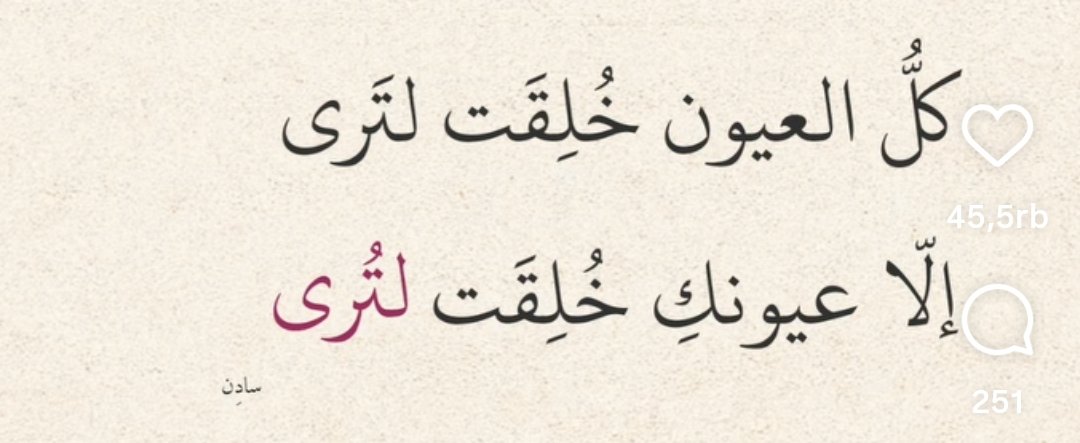 كلُّ العيون خُلِقَت لتَرى
45,5rb
إلّا عيونكِ خُلِقَت لتُرى
سادِن
251